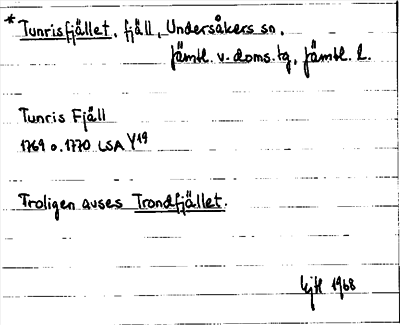 * Tunrisfjället, fjäll, Undersåkers sn,
Jämtl. v. doms.tg, Jämtl. l.
Tunris Fjäll
1769 o. 1770 LSA Y19
Troligen avses Trondfjället.
1968